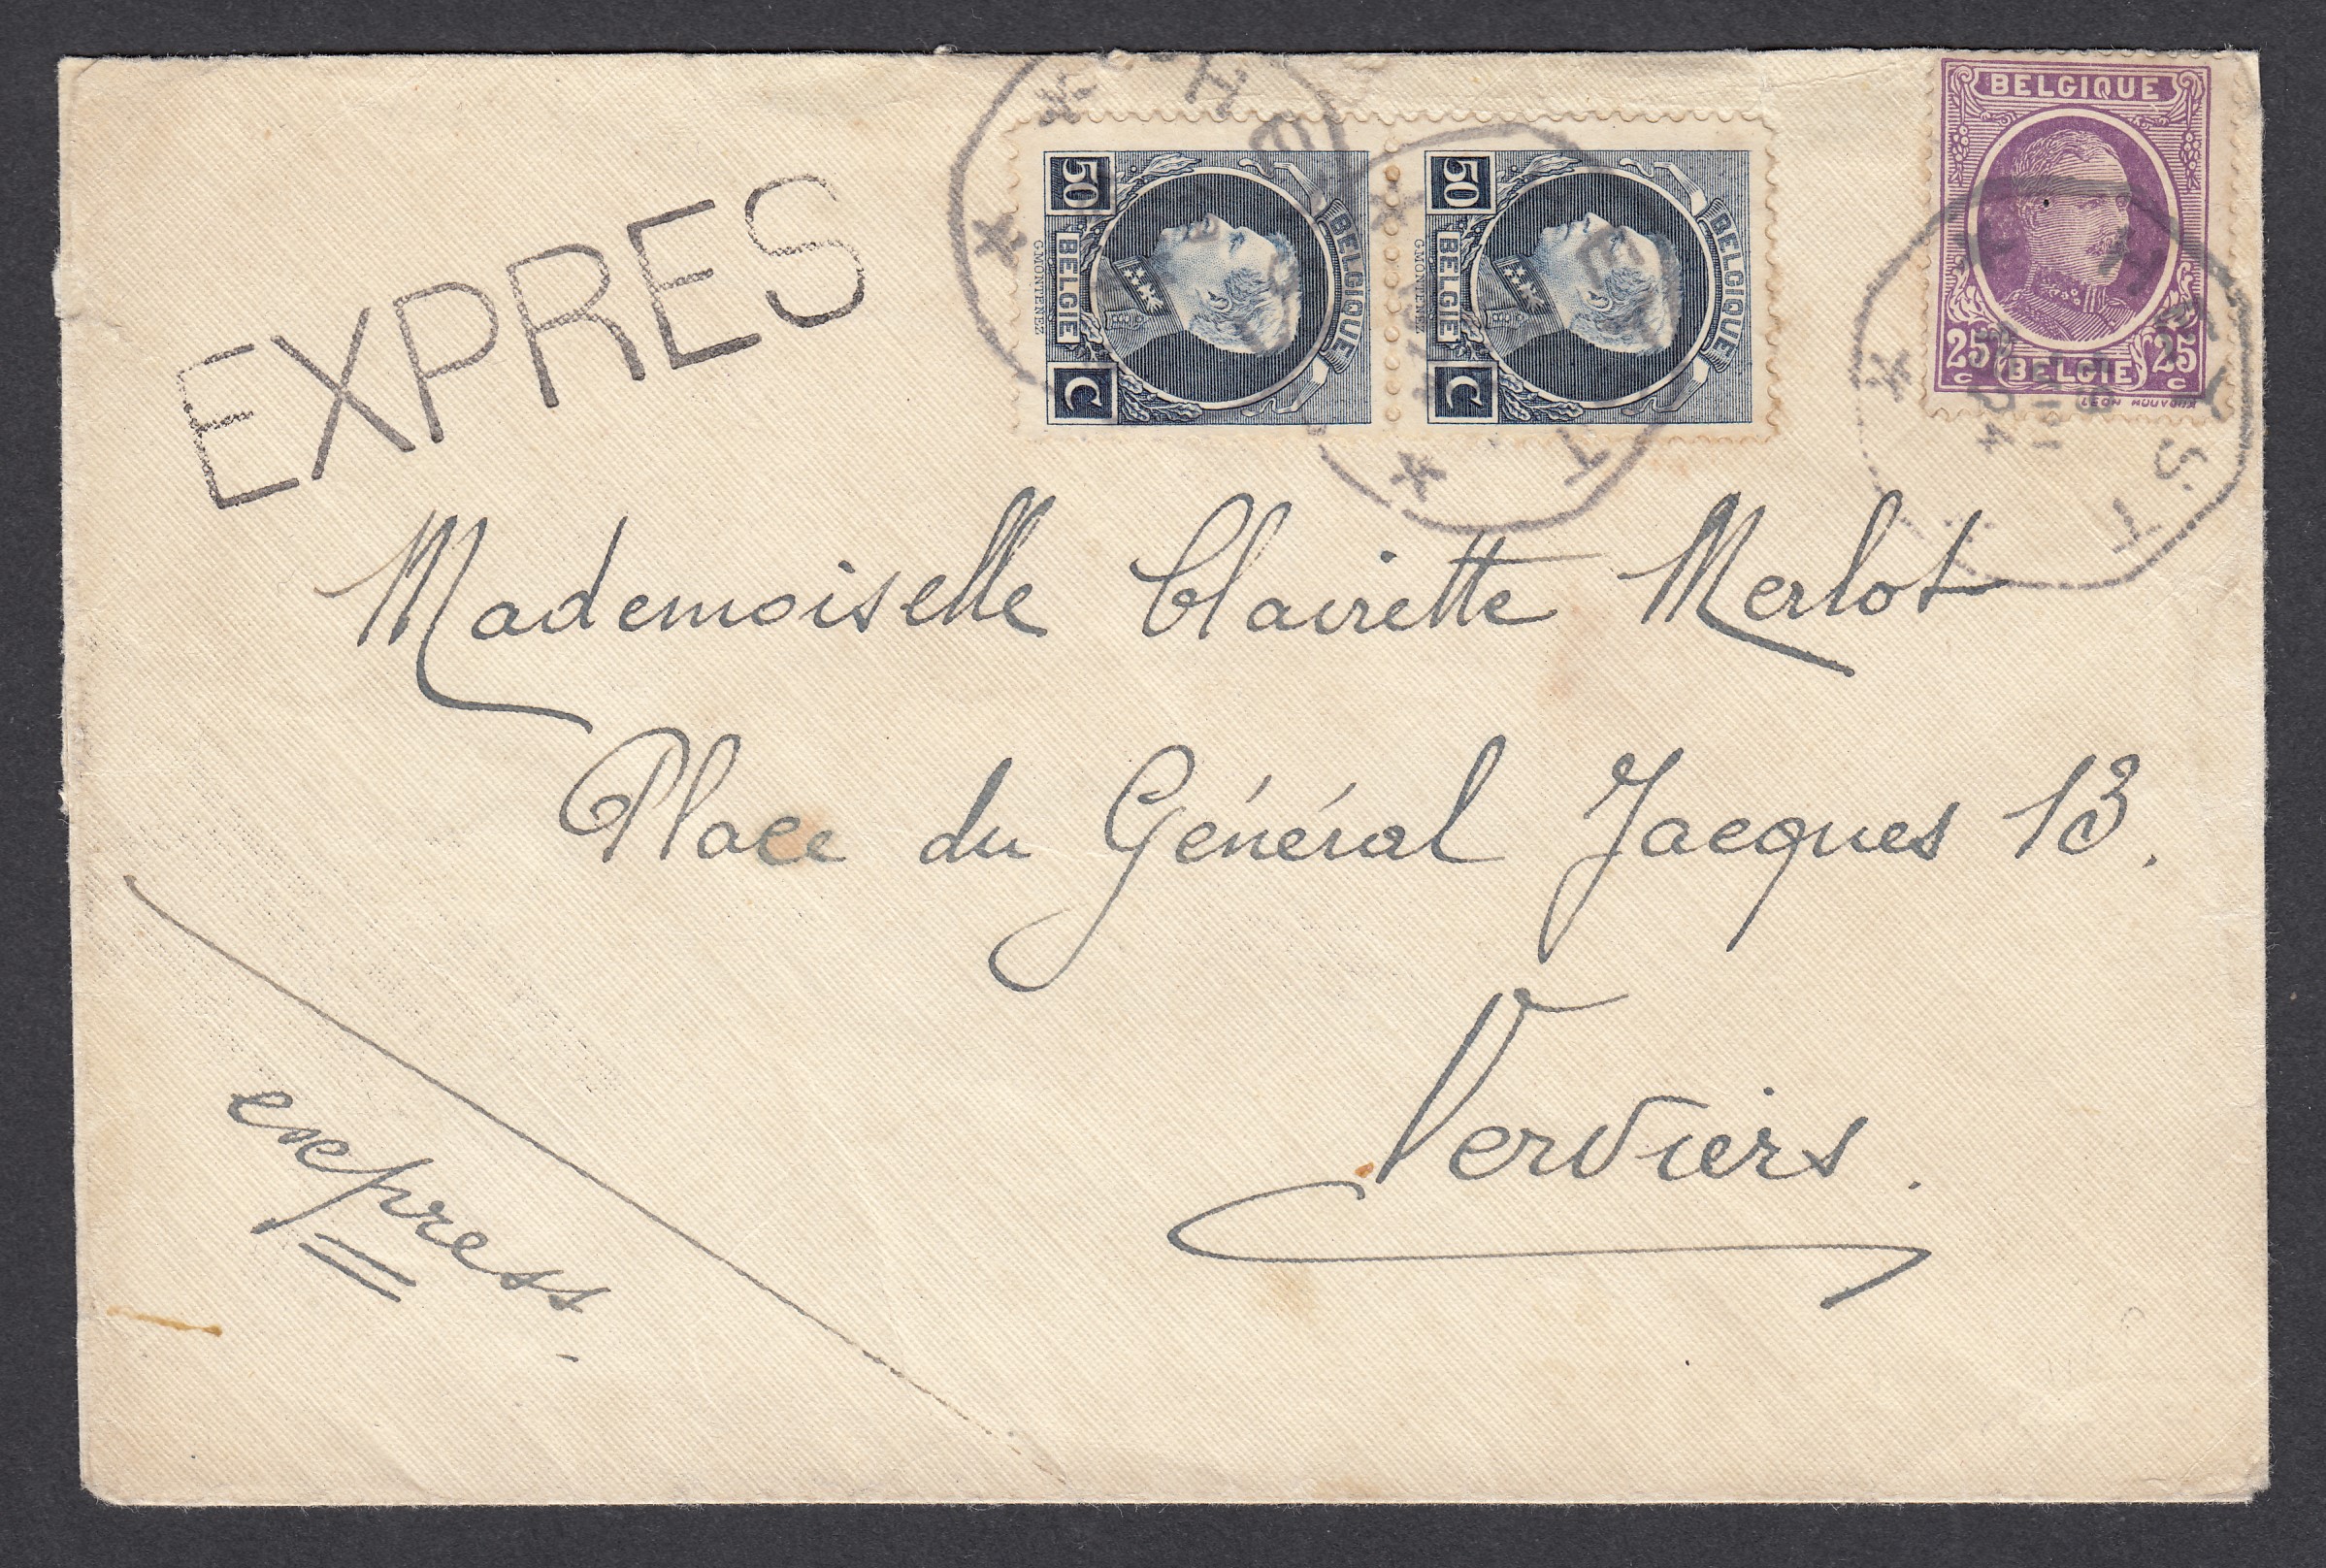 BELGIQUE
25 C BELGIE 25 C
50 C
BELGIE
BELGIQUE
G.MONTENEZ
50 C
BELGIE
BELGIQUE
G.MONTENEZ
EXPRES
THEUX
T
Mademoiselle Clairette Merlot
Place du Général Jacques 13.
Verviers.
express.